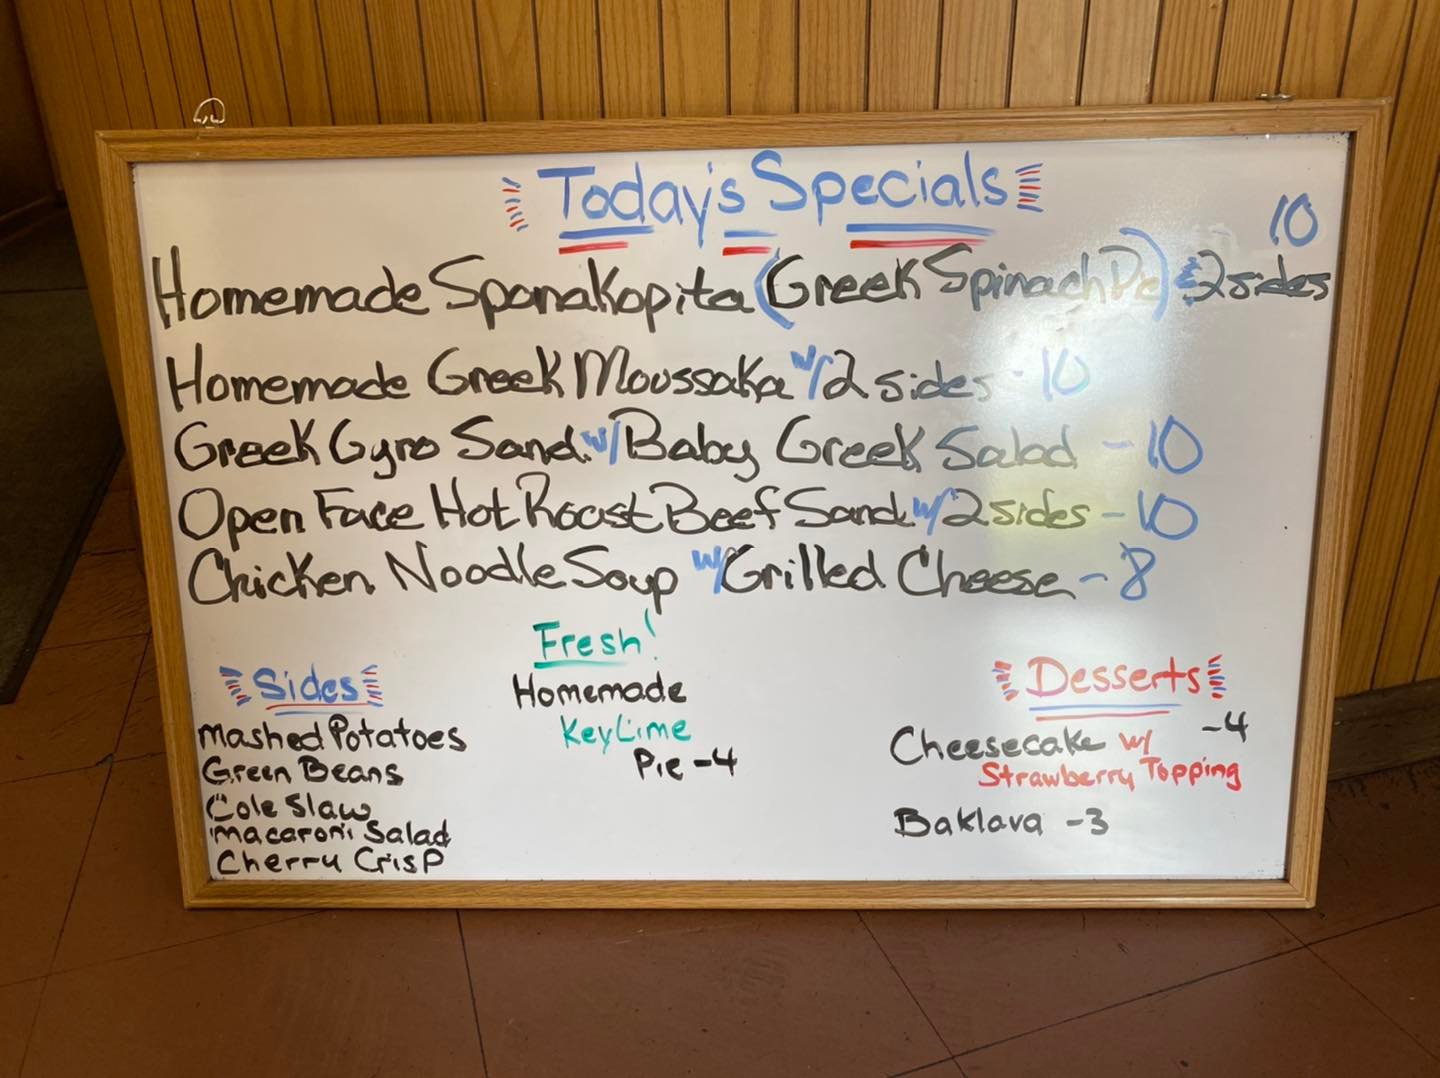 Today's Specials
10
Homemade Sponakopita (Greek Spinach Pie) & 2 sides
Homemade Greek Moussaka w/ 2 sides - 10
Greek Gyro Sand. w/ Baby Greek Salad - 10
Open Face Hot Roast Beef Sand. w/ 2 sides - 10
Chicken Noodle Soup w/ Grilled Cheese - 8
Fresh!
Homemade
Key Lime
Pie - 4
Sides
Mashed Potatoes
Green Beans
Cole Slaw
Macaroni Salad
Cherry Crisp
Desserts
Cheesecake w/ - 4
Strawberry Topping
Baklava - 3